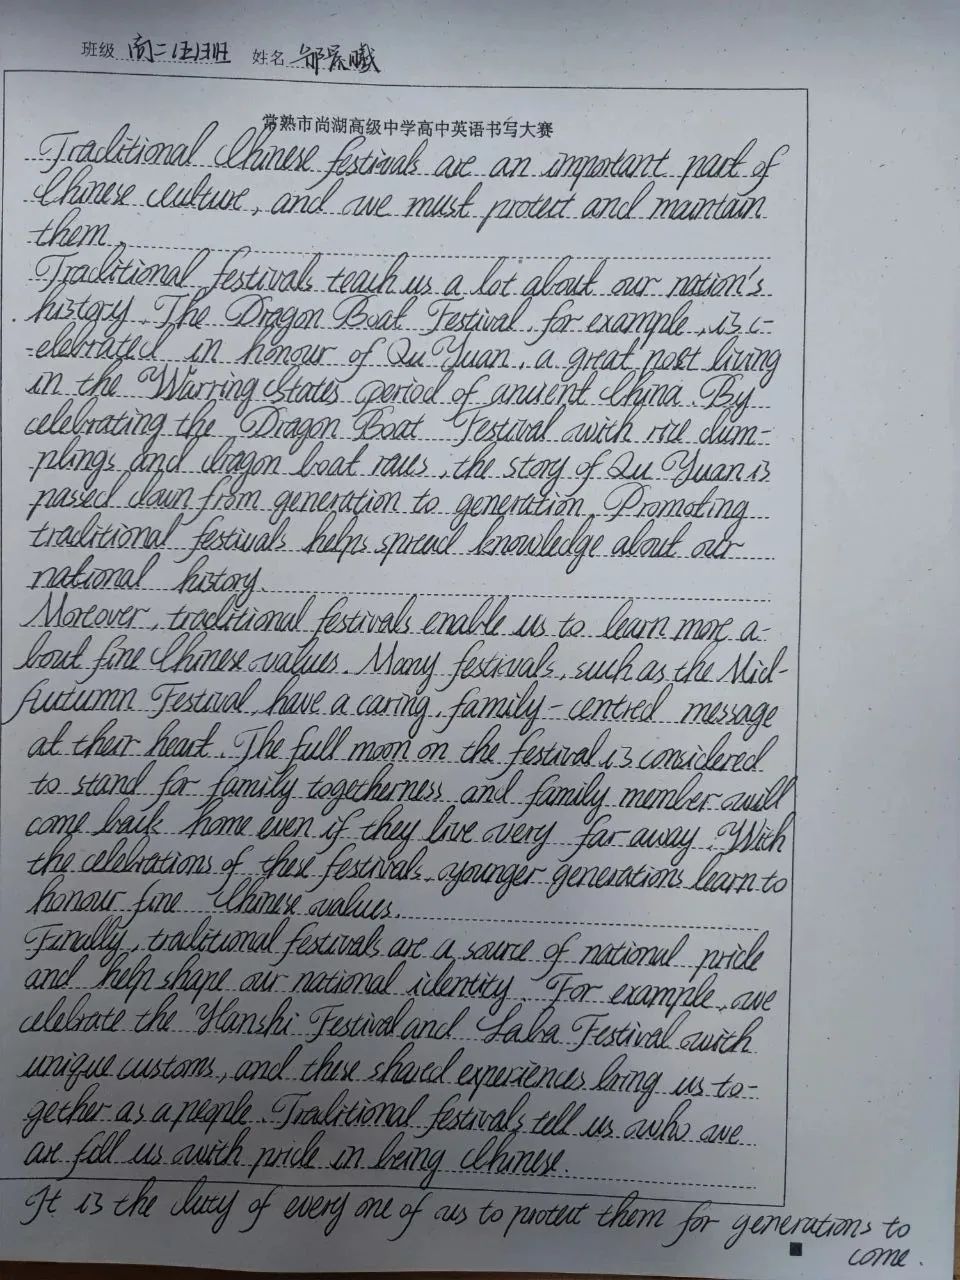 班级 高二(5)班 姓名 邹晨曦
常熟市尚湖高级中学高中英语书写大赛
Traditional Chinese festivals are an important part of
Chinese culture, and we must protect and maintain
them.
Traditional festivals teach us a lot about our nation's
history. The Dragon Boat Festival, for example, is c-
-elebrated in honour of Qu Yuan, a great poet living
in the Warring States period of ancient China. By
celebrating the Dragon Boat Festival with rice dum-
plings and dragon boat races, the story of Qu Yuan is
passed down from generation to generation. Promoting
traditional festivals helps spread knowledge about our
national history.
Moreover, traditional festivals enable us to learn more a-
bout fine Chinese values. Many festivals, such as the Mid-
Autumn Festival, have a caring, family-centred message
at their heart. The full moon on the festival is considered
to stand for family togetherness and family member will
come back home even if they live very far away. With
the celebrations of these festivals, younger generations learn to
honour fine Chinese values.
Finally, traditional festivals are a source of national pride
and help shape our national identity. For example, we
celebrate the Hanshi Festival and Laba Festival with
unique customs, and these shared experiences bring us to-
gether as a people. Traditional festivals tell us who we
are fill us with pride in being Chinese.
It is the duty of every one of us to protect them for generations to
come.